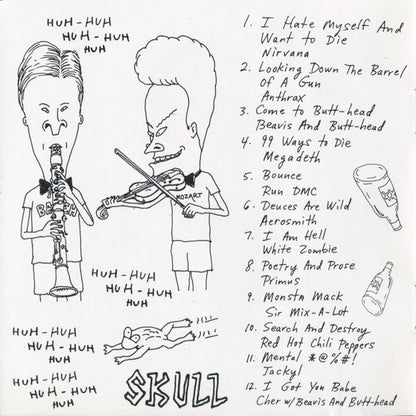 HUH-HUH
HUH-HUH
HUH
BACH
MOZART
HUH-HUH
HUH-HUH
HUH
HUH-HUH
HUH-HUH
HUH
HUH-HUH
HUH-HUH
HUH
SKULL
1. I Hate Myself And
Want to Die
Nirvana
2. Looking Down The Barrel
Of A Gun
Anthrax
3. Come to Butt-head
Beavis And Butt-head
4. 99 Ways to Die
Megadeth
5. Bounce
Run DMC
6. Deuces Are Wild
Aerosmith
7. I Am Hell
White Zombie
8. Poetry And Prose
Primus
9. Monsta Mack
Sir Mix-A-Lot
10. Search And Destroy
Red Hot Chili Peppers
11. Mental *@%#!
Jackyl
12. I Got You Babe
Cher w/Beavis And Butt-head